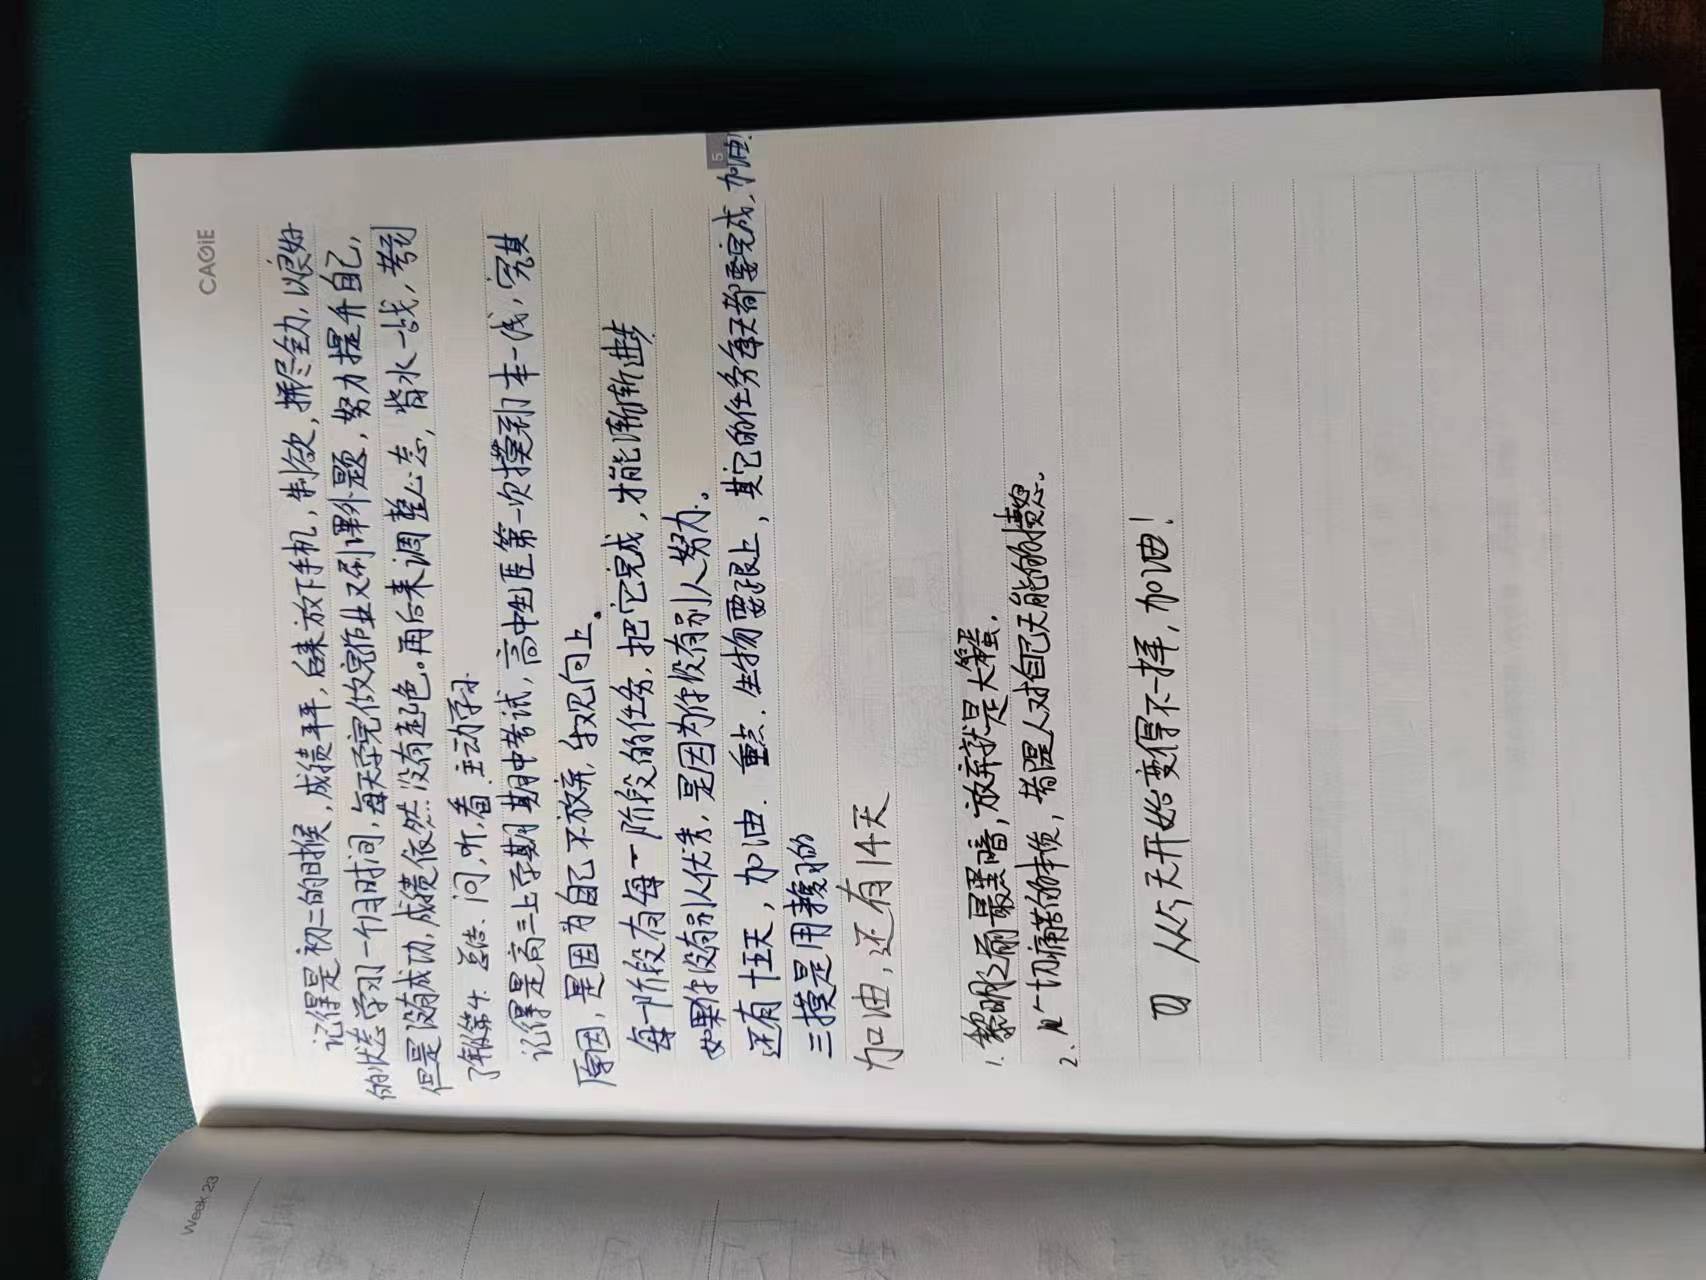 CAGIE
记得是初二的时候,成绩平平,后来放下手机,制欲,拼尽全力,以良好
的状态学习一个月时间,每天学完做完作业又刷课外题,努力提升自己,
但是没有成功,成绩依然没有起色。再后来调整心态,背水一战,考到
了年级第4. 总结.问,听,看.主动学习
记得是高三上学期期中考试,高中生涯第一次摸到本一线,究其
原因,是因为自己不放弃,乐观向上。
每一阶段有每一阶段的任务,把它完成,才能渐渐进步
如果你没有别人优秀,是因为你没有别人努力.
还有十五天,加油.重点.生物要跟上,其它的任务每天都要完成,加油.
5
三摸是用来的
加油,还有14天
1. 黎明之前最黑暗,放弃就是大笨蛋.
2、一切痛苦的本质,皆是人对自己无能的愤怒。
四 从今天开始变得不一样,加油!
Week 23